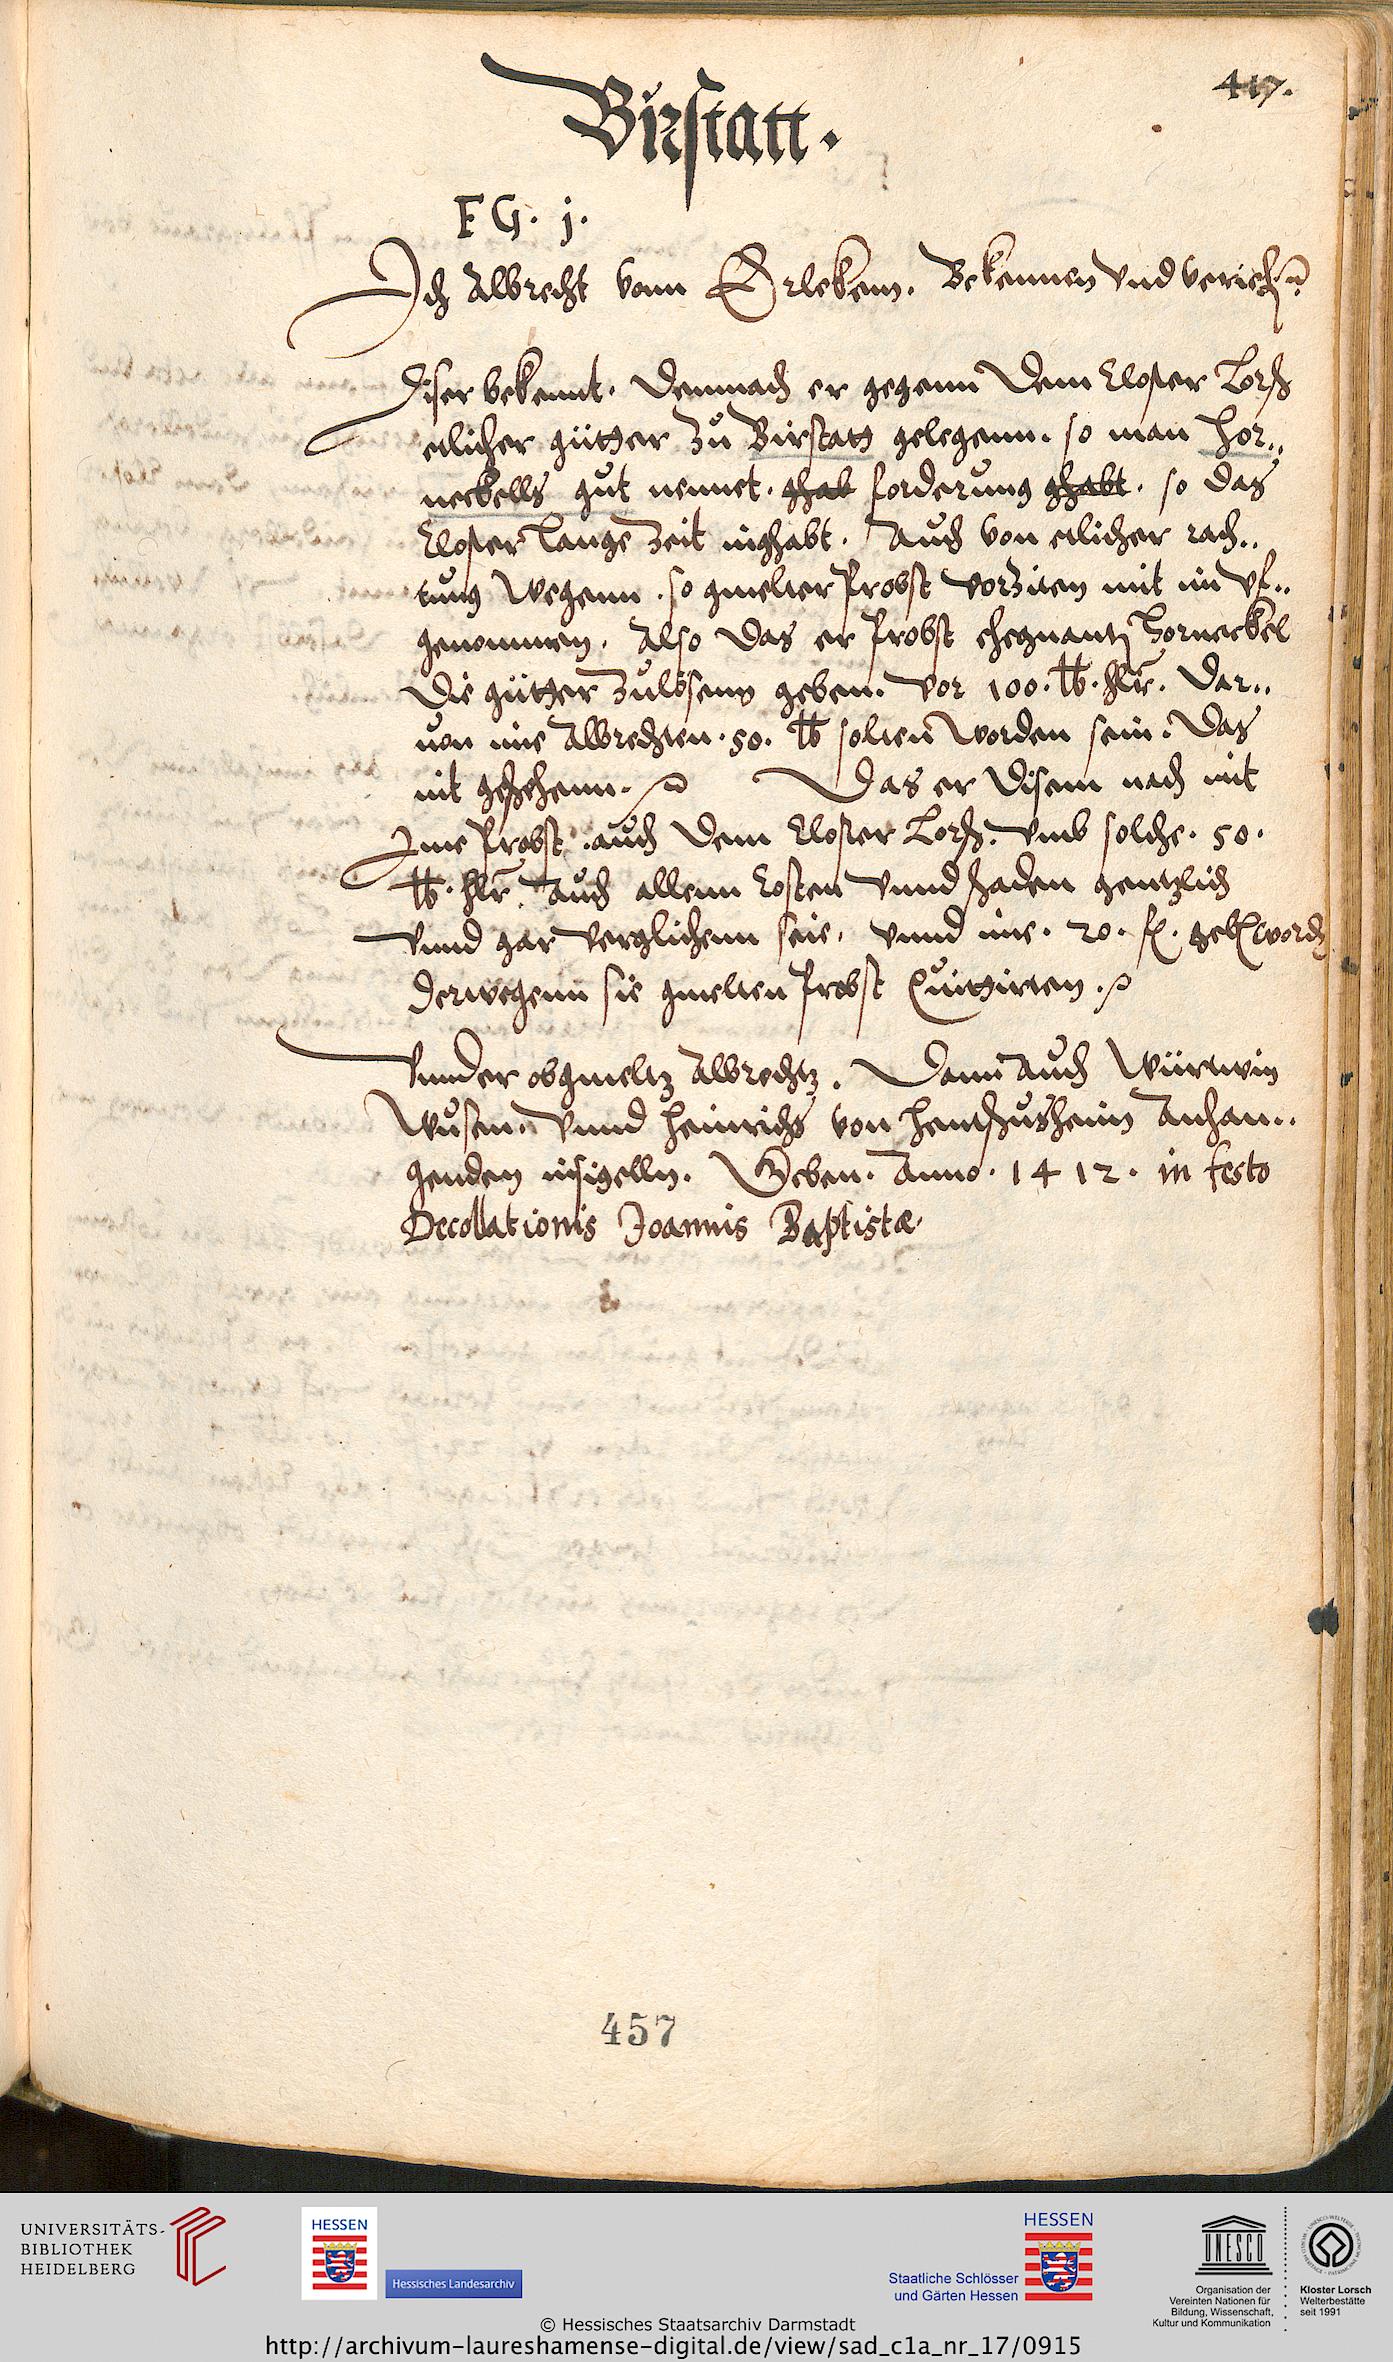 417.
Birstatt.
FG. j.
Ich Albrecht vonn Erlekem. Bekennen vnd
Diser bekennt. Demnach er gegenn dem Closter Lorsch
etlicher gütter zu Birstatt gelegenn. so man Hor..
neckells gut nennet. ghab forderung ghabt. so das
Closter lange zeit inghabt. Auch von etlicher rach..
tung wegenn. so gmelter Probst vorziten mit im vf..
genommen. Also das er Probst Horneckel
die gütter zulösenn geben. vor 100. lb. hlr. Dar..
uon ime Albrechten. 50. lb solten worden sein. Das
nit geschehenn. Das er disem nach mit
Ime Probst. auch dem Closter Lorsch. vmb solche. 50.
lb. hlr. Auch allenn Costen vnnd schaden gentzlich
vnnd gar verglichenn seie. vnnd ime. 20. fl. geben
derwegenn sie gmelten Probst Quittirten.
Vnnder obgmeltz Albrechtz. Dann auch Würtwin
vnnd Heinrichs von Hentschusheim Anhan..
genden insigelln. Geben. Anno. 1412. in festo
Decollationis Joannis Baptistæ.
457
UNIVERSITÄTS-
BIBLIOTHEK
HEIDELBERG
HESSEN
Hessisches Landesarchiv
HESSEN
Staatliche Schlösser
und Gärten Hessen
UNESCO
Organisation der
Vereinten Nationen für
Bildung, Wissenschaft,
Kultur und Kommunikation
Kloster Lorsch
Welterbestätte
seit 1991
© Hessisches Staatsarchiv Darmstadt
http://archivum-laureshamense-digital.de/view/sad_c1a_nr_17/0915